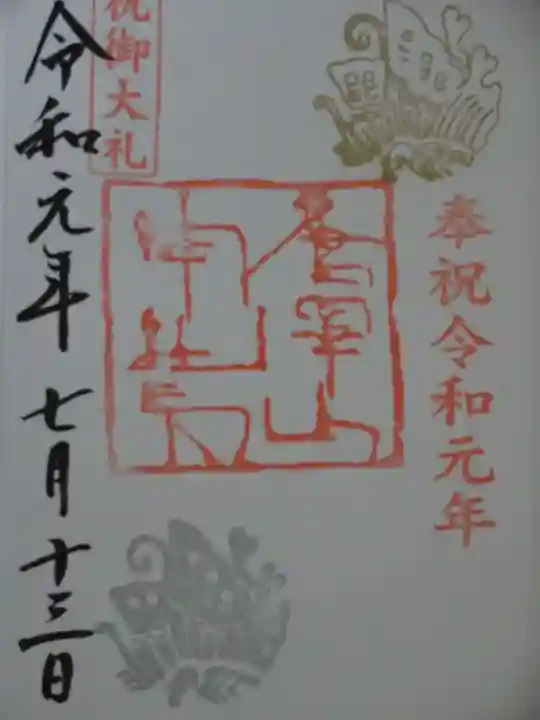 奉祝令和元年
祝御大礼
令和元年七月十三日